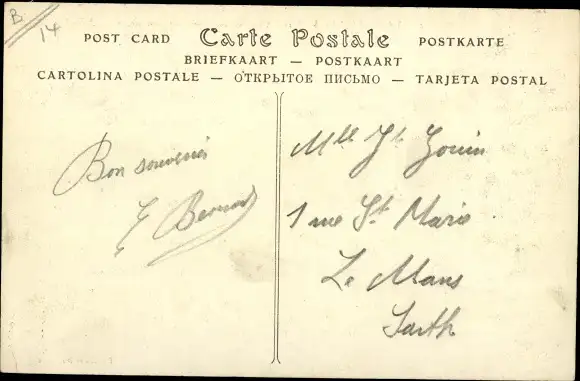 B
14
POST CARD Carte Postale POSTKARTE
BRIEFKAART — POSTKAART
CARTOLINA POSTALE — ОТКРЫТОЕ ПИСЬМО — TARJETA POSTAL
Bon souvenir
Bernard
Mlle Jouin
1 rue St Marie
Le Mans
Sarth